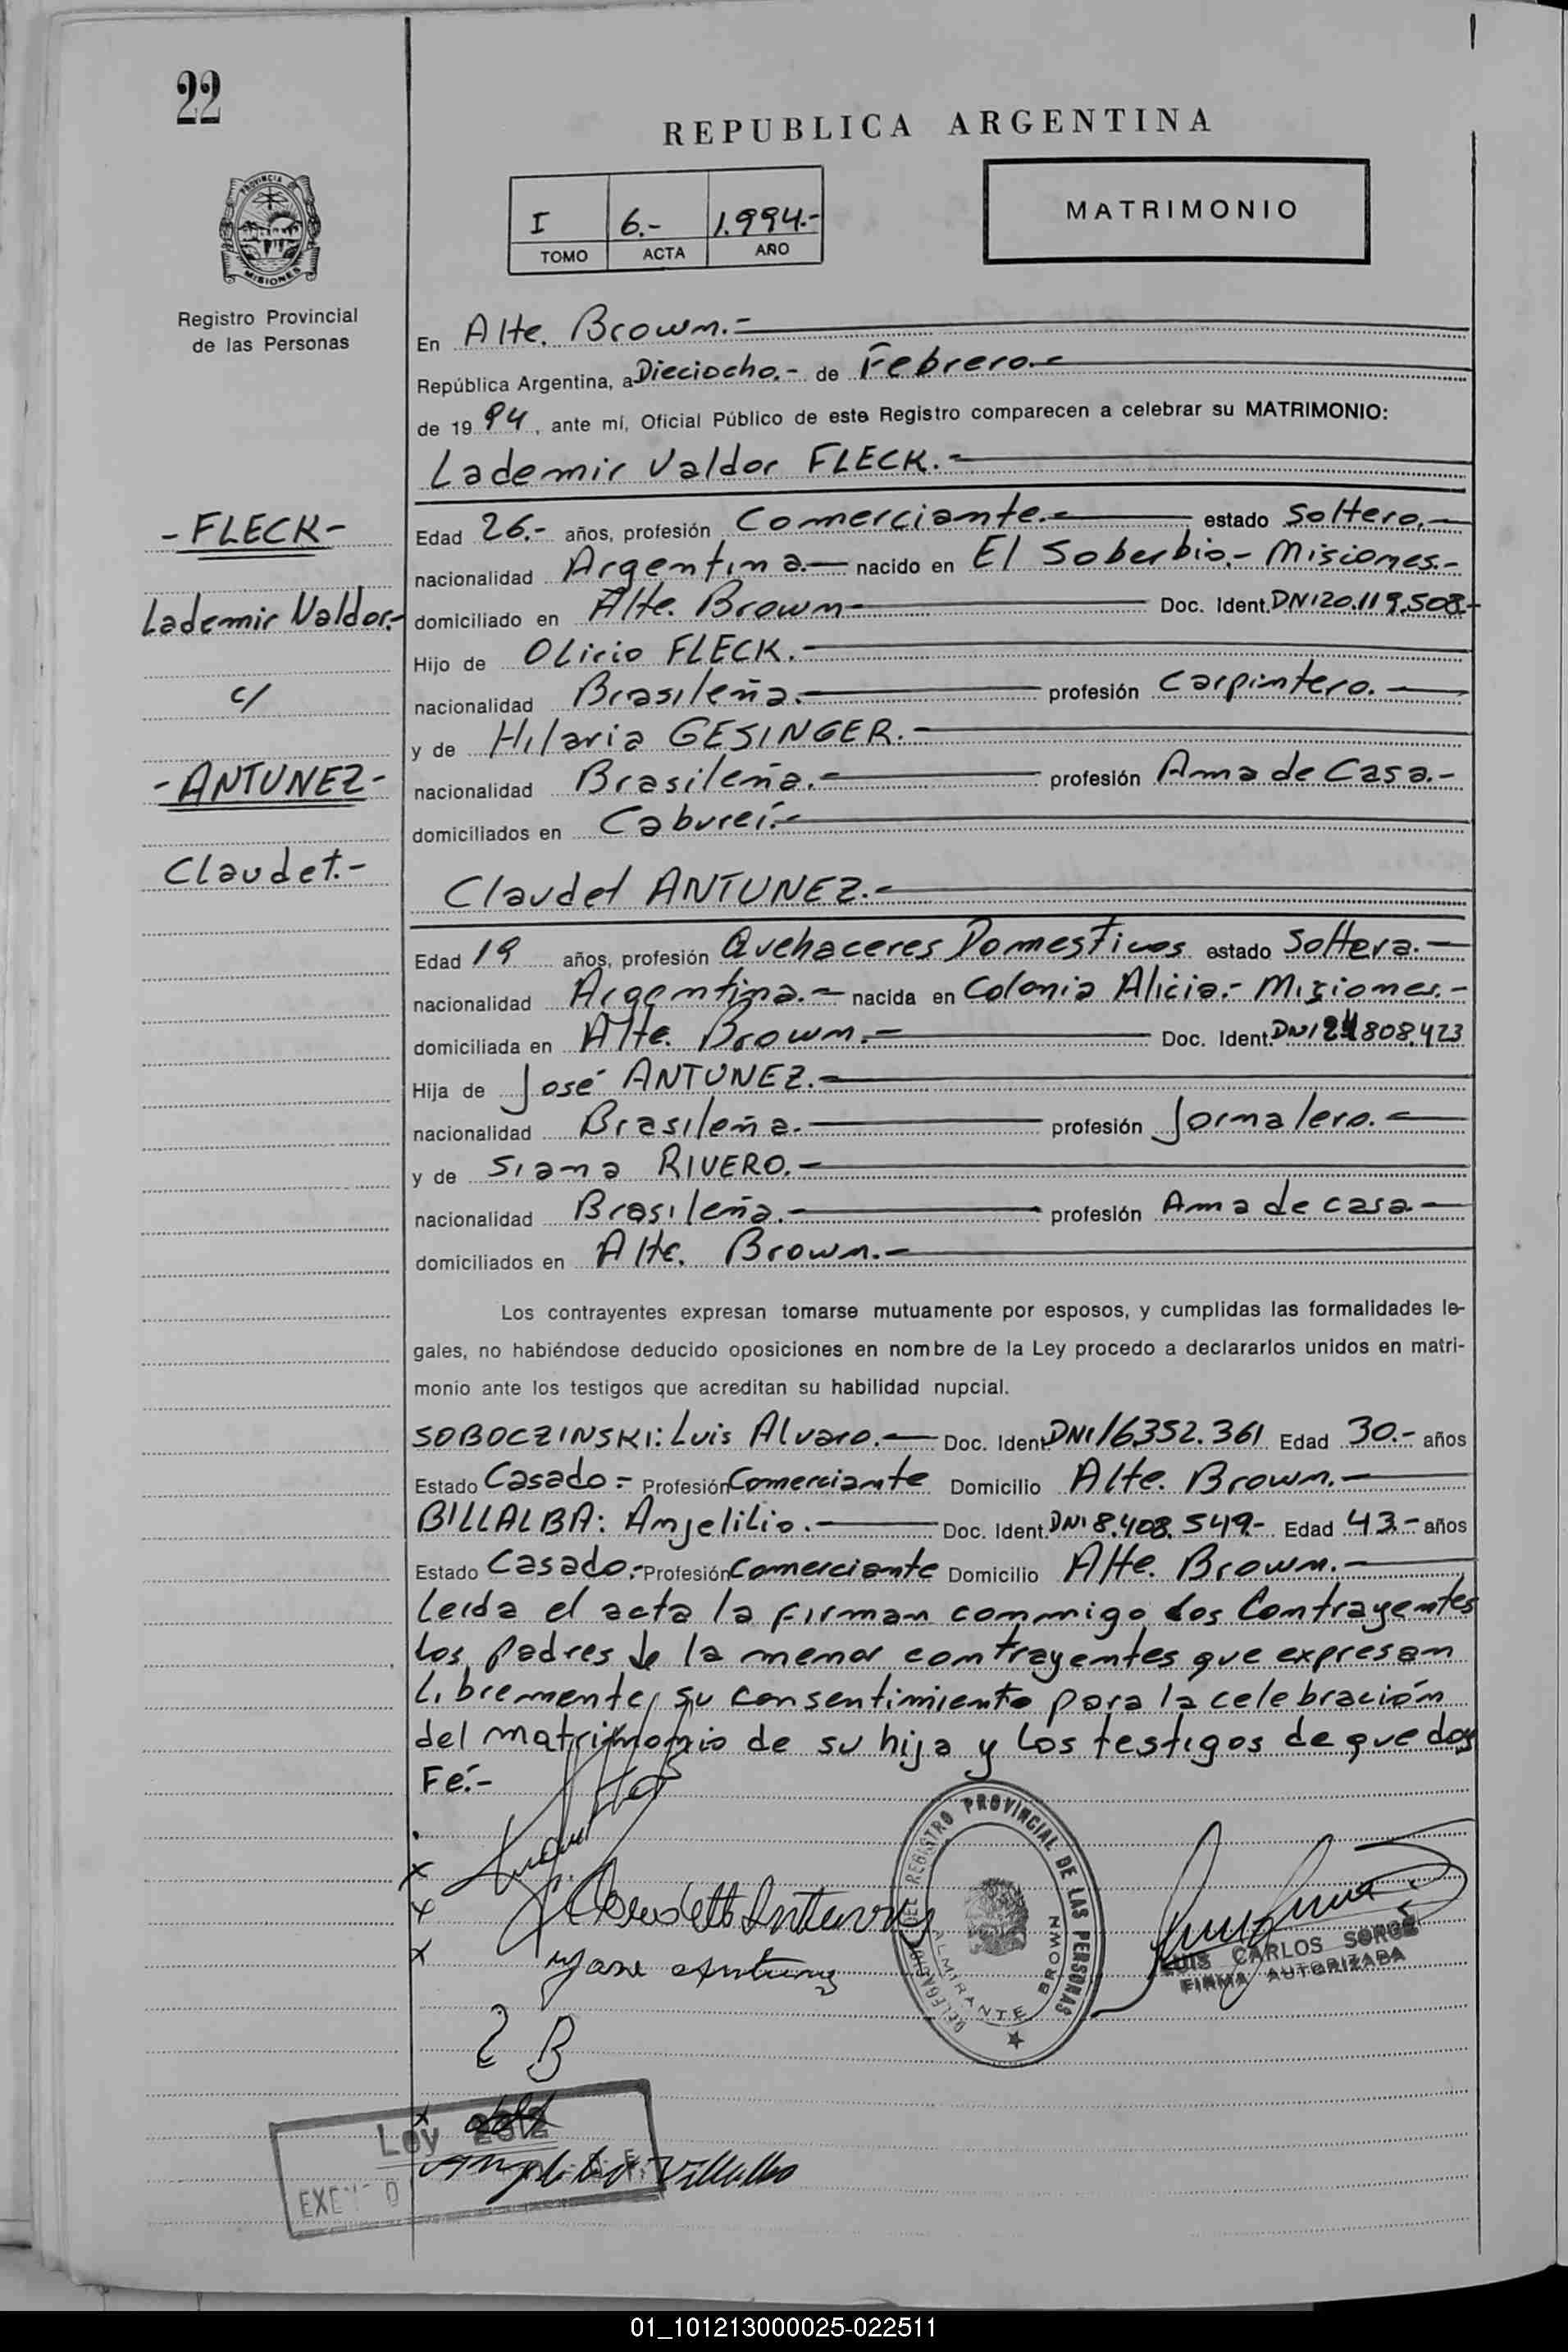 22
REPUBLICA ARGENTINA
PROVINCIA DE
MISIONES
I 6.- 1.994.-
TOMO ACTA AÑO
MATRIMONIO
Registro Provincial
de las Personas
En Alte. Brown.-
República Argentina, a Dieciocho.- de Febrero.-
de 19 94, ante mí, Oficial Público de este Registro comparecen a celebrar su MATRIMONIO:
Lademir Valdor FLECK.-
- FLECK -
Lademir Valdor.-
c/
- ANTUNEZ -
Claudet.-
Edad 26.- años, profesión Comerciante.- estado Soltero.-
nacionalidad Argentina.- nacido en El Soberbio.- Misiones.-
domiciliado en Alte. Brown Doc. Ident. DNI 20.119.508.-
Hijo de Olirio FLECK.-
nacionalidad Brasileña.- profesión Carpintero.-
y de Hilaria GESINGER.-
nacionalidad Brasileña.- profesión Ama de Casa.-
domiciliados en Cabureí.-
Claudet ANTUNEZ.-
Edad 19 años, profesión Quehaceres Domesticos estado Soltera.-
nacionalidad Argentina.- nacida en Colonia Alicia.- Misiones.-
domiciliada en Alte. Brown.- Doc. Ident. DNI 24808.423
Hija de José ANTUNEZ.-
nacionalidad Brasileña.- profesión Jornalero.-
y de Siana RIVERO.-
nacionalidad Brasileña.- profesión Ama de casa.-
domiciliados en Alte. Brown.-
Los contrayentes expresan tomarse mutuamente por esposos, y cumplidas las formalidades le-
gales, no habiéndose deducido oposiciones en nombre de la Ley procedo a declararlos unidos en matri-
monio ante los testigos que acreditan su habilidad nupcial.
SOBOCZINSKI: Luis Alvaro.- Doc. Ident. DNI 16352.361 Edad 30.- años
Estado Casado.- Profesión Comerciante Domicilio Alte. Brown.-
BILLALBA: Anjelilio.- Doc. Ident. DNI 8.408.549.- Edad 43.- años
Estado Casado.- Profesión Comerciante Domicilio Alte. Brown.-
Leida el acta la firman conmigo los Contrayentes
los padres de la menor contrayentes que expresan
libremente su consentimiento para la celebración
del matrimonio de su hija y los testigos de que doy
Fé.-
DELEGACION DEL REGISTRO PROVINCIAL DE LAS PERSONAS
ALMIRANTE BROWN
LUIS CARLOS SORGE
FIRMA AUTORIZADA
Ley
01_101213000025-022511